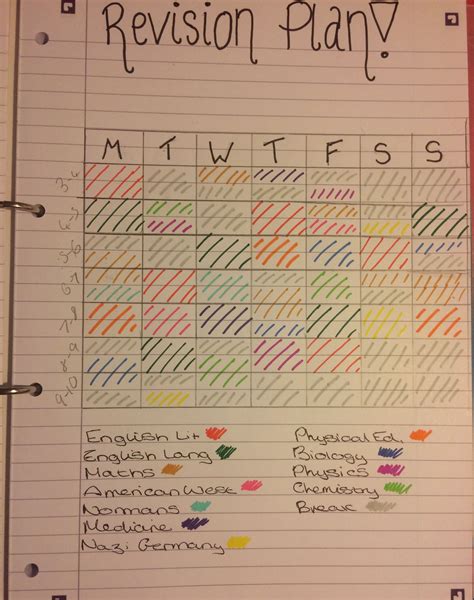 Revision Plan!
M T W T F S S
3-4
4-5
5-6
6-7
7-8
8-9
9-10
English Lit Physical Ed.
English Lang Biology
Maths Physics
American West Chemistry
Normans Break
Medicine
Nazi Germany